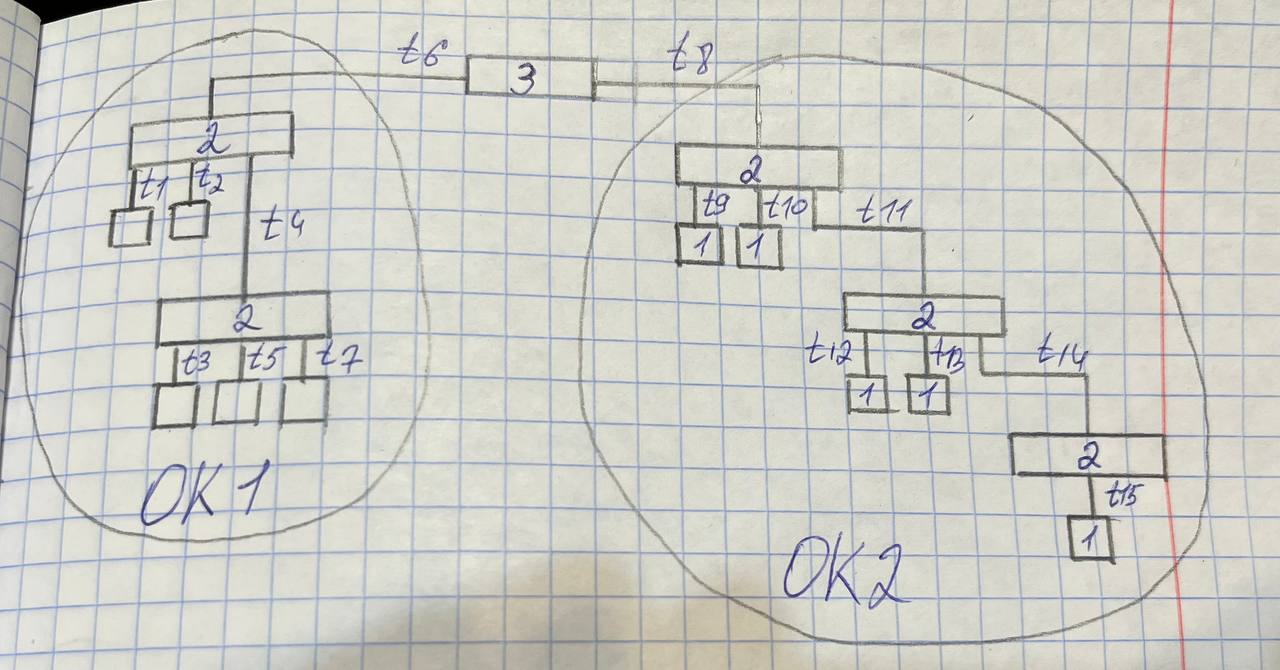 t6 3 t8
2
t1 t2
t4
2
t3 t5 t7
OK1
2
t9 t10 t11
1 1
2
t12 t13 t14
1 1
2
t15
1
OK2